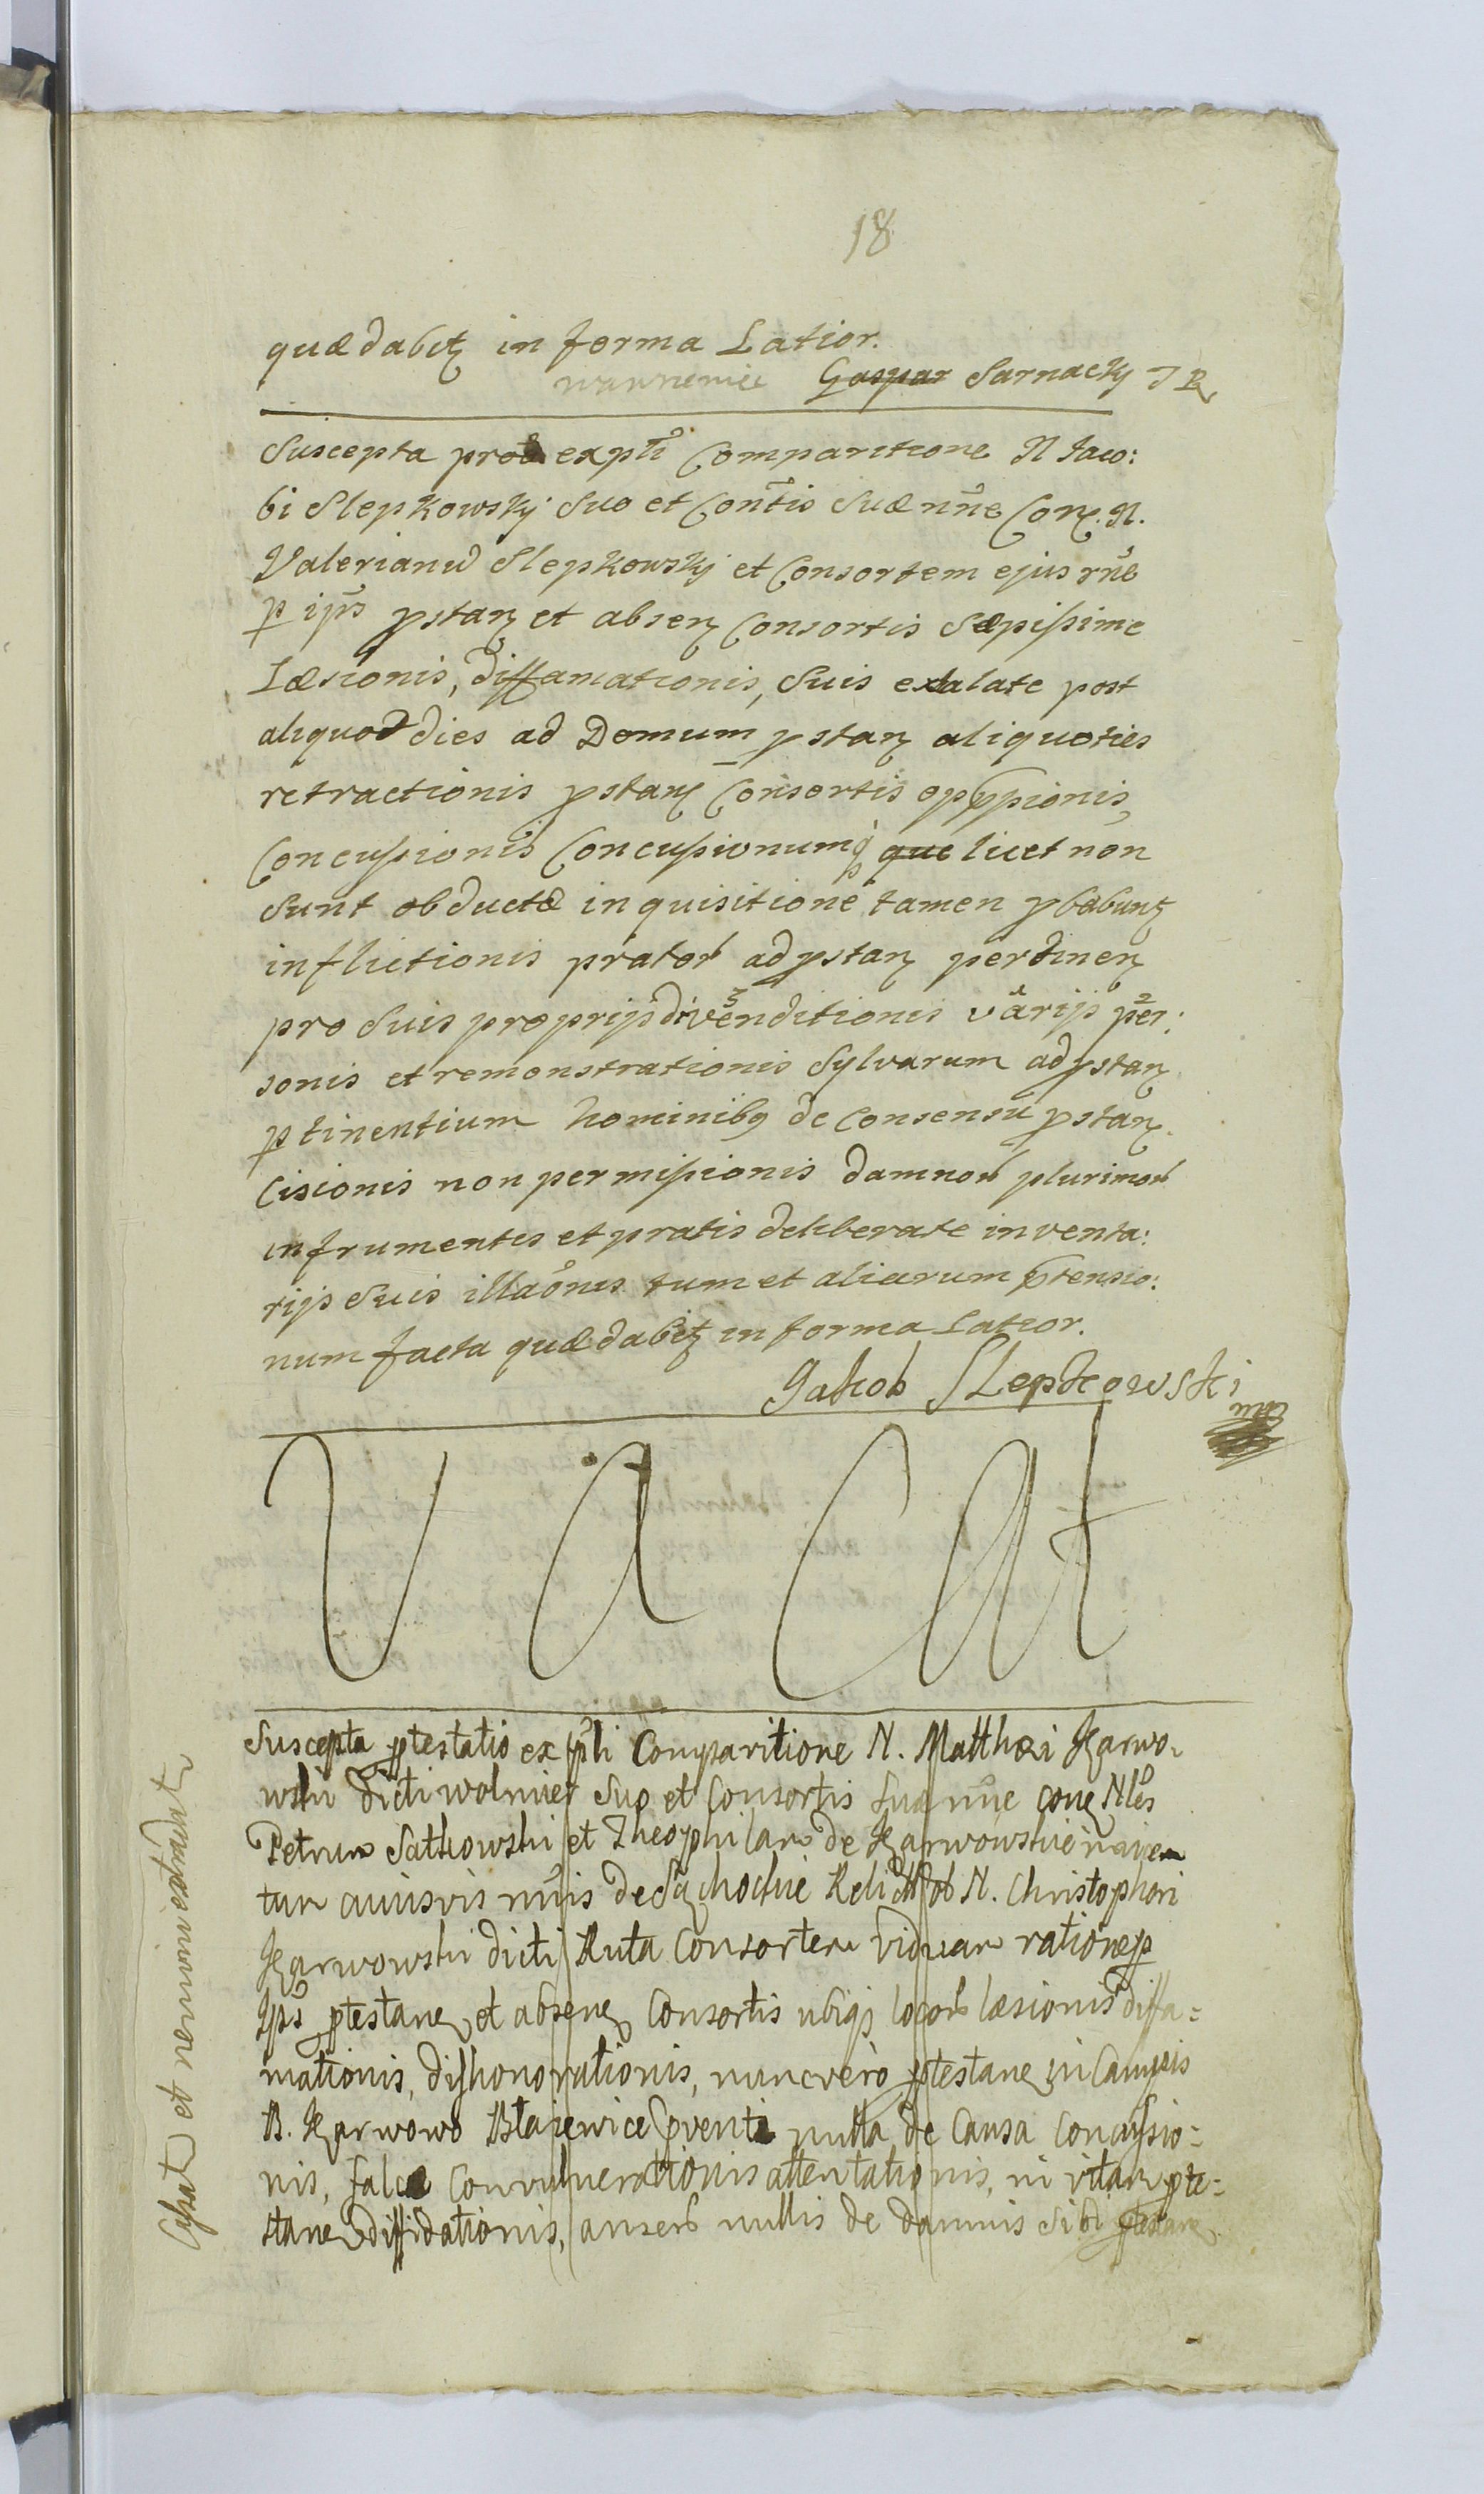 18
quædabit in forma Latior.
Gaspar Sarnacky
Suscepta prot expti Comparitione N Jaco:
bi Slepkowsky Suo et Contis Suæ nne Con. N.
Valerianu Slepkowsky et Consortem ejus rne
p ips pstan et absen Consortis Sæpissime
Læsionis, diffamationis, Suis exalate post
aliquot dies ad Domum pstan aliquoties
retractionis pstan Consortis oppionis,
Concussionis Concussionumq que licet non
Sunt obductæ inquisitione tamen pbabunt
inflictionis prator ad pstan pertinen
pro Suis proprijs divenditionis varijs per:
sonis et remonstrationis Sylvarum ad pstan
ptinentium hominibq de Consensu pstan.
Cisionis non permissionis damnor plurimor
in frumentis et pratis deliberate inventa:
rijs Suis illaonis tum et aliarum ptensio:
num facta quæ dabit in forma Latior.
Jakob Slepkowski
Vacat
Suscepta ptestatio ex pti Comparitione N. Matthæi Karwo-
wski dicti wolmier Suo et Consortis suæ nne con Nles
Petrum Sathowski et Theophilam de Karwowskie
tum cuiusvis nnis de Relictam ob N. Christophori
Karwowski dicti Ruta Consortem Viduam ratione p
Ips ptestan et absen Consortis ubiqs locor læsionis diffa=
mationis, dishonorationis, nunc vero ptestan in Campis
B. Karwowo Blazewice pventi nulla de Causa Concussio=
nis, falce Convulnerationis attentationis, in vitam pte=
stan diffidationis, anser nullis de damnis sibi ptestan
Cassat et nemini extradat